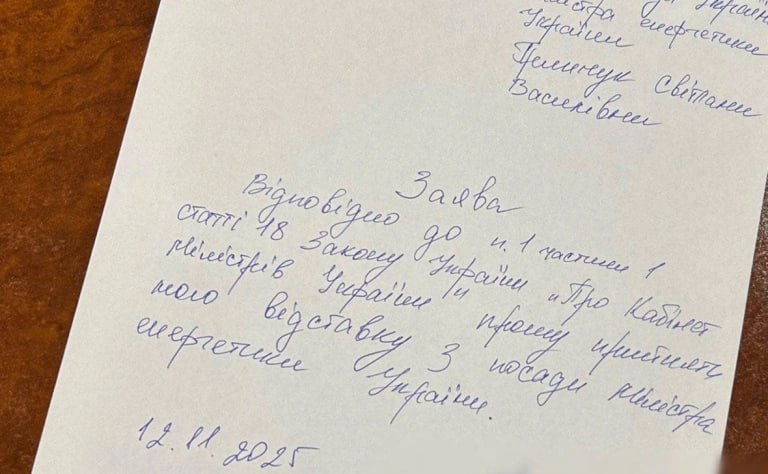 України
міністра енергетики
України
Гринчук Світлани
Василівни
Заява
Відповідно до п. 1 частини 1
статті 18 Закону України „Про Кабінет
Міністрів України" прошу прийняти
мою відставку з посади Міністра
енергетики України.
12.11.2025